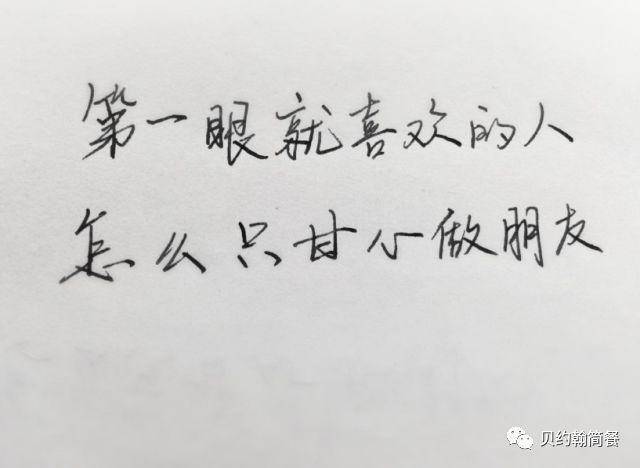 第一眼就喜欢的人
怎么只甘心做朋友
贝约翰简餐